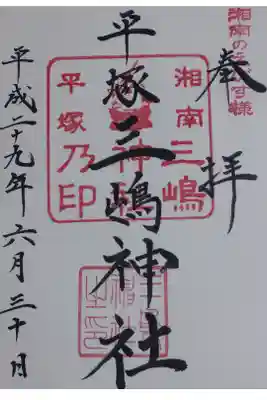 湘南の
様
奉拝
湘南三嶋
神社
平塚乃印
平塚三嶋神社
平成二十九年六月三十日